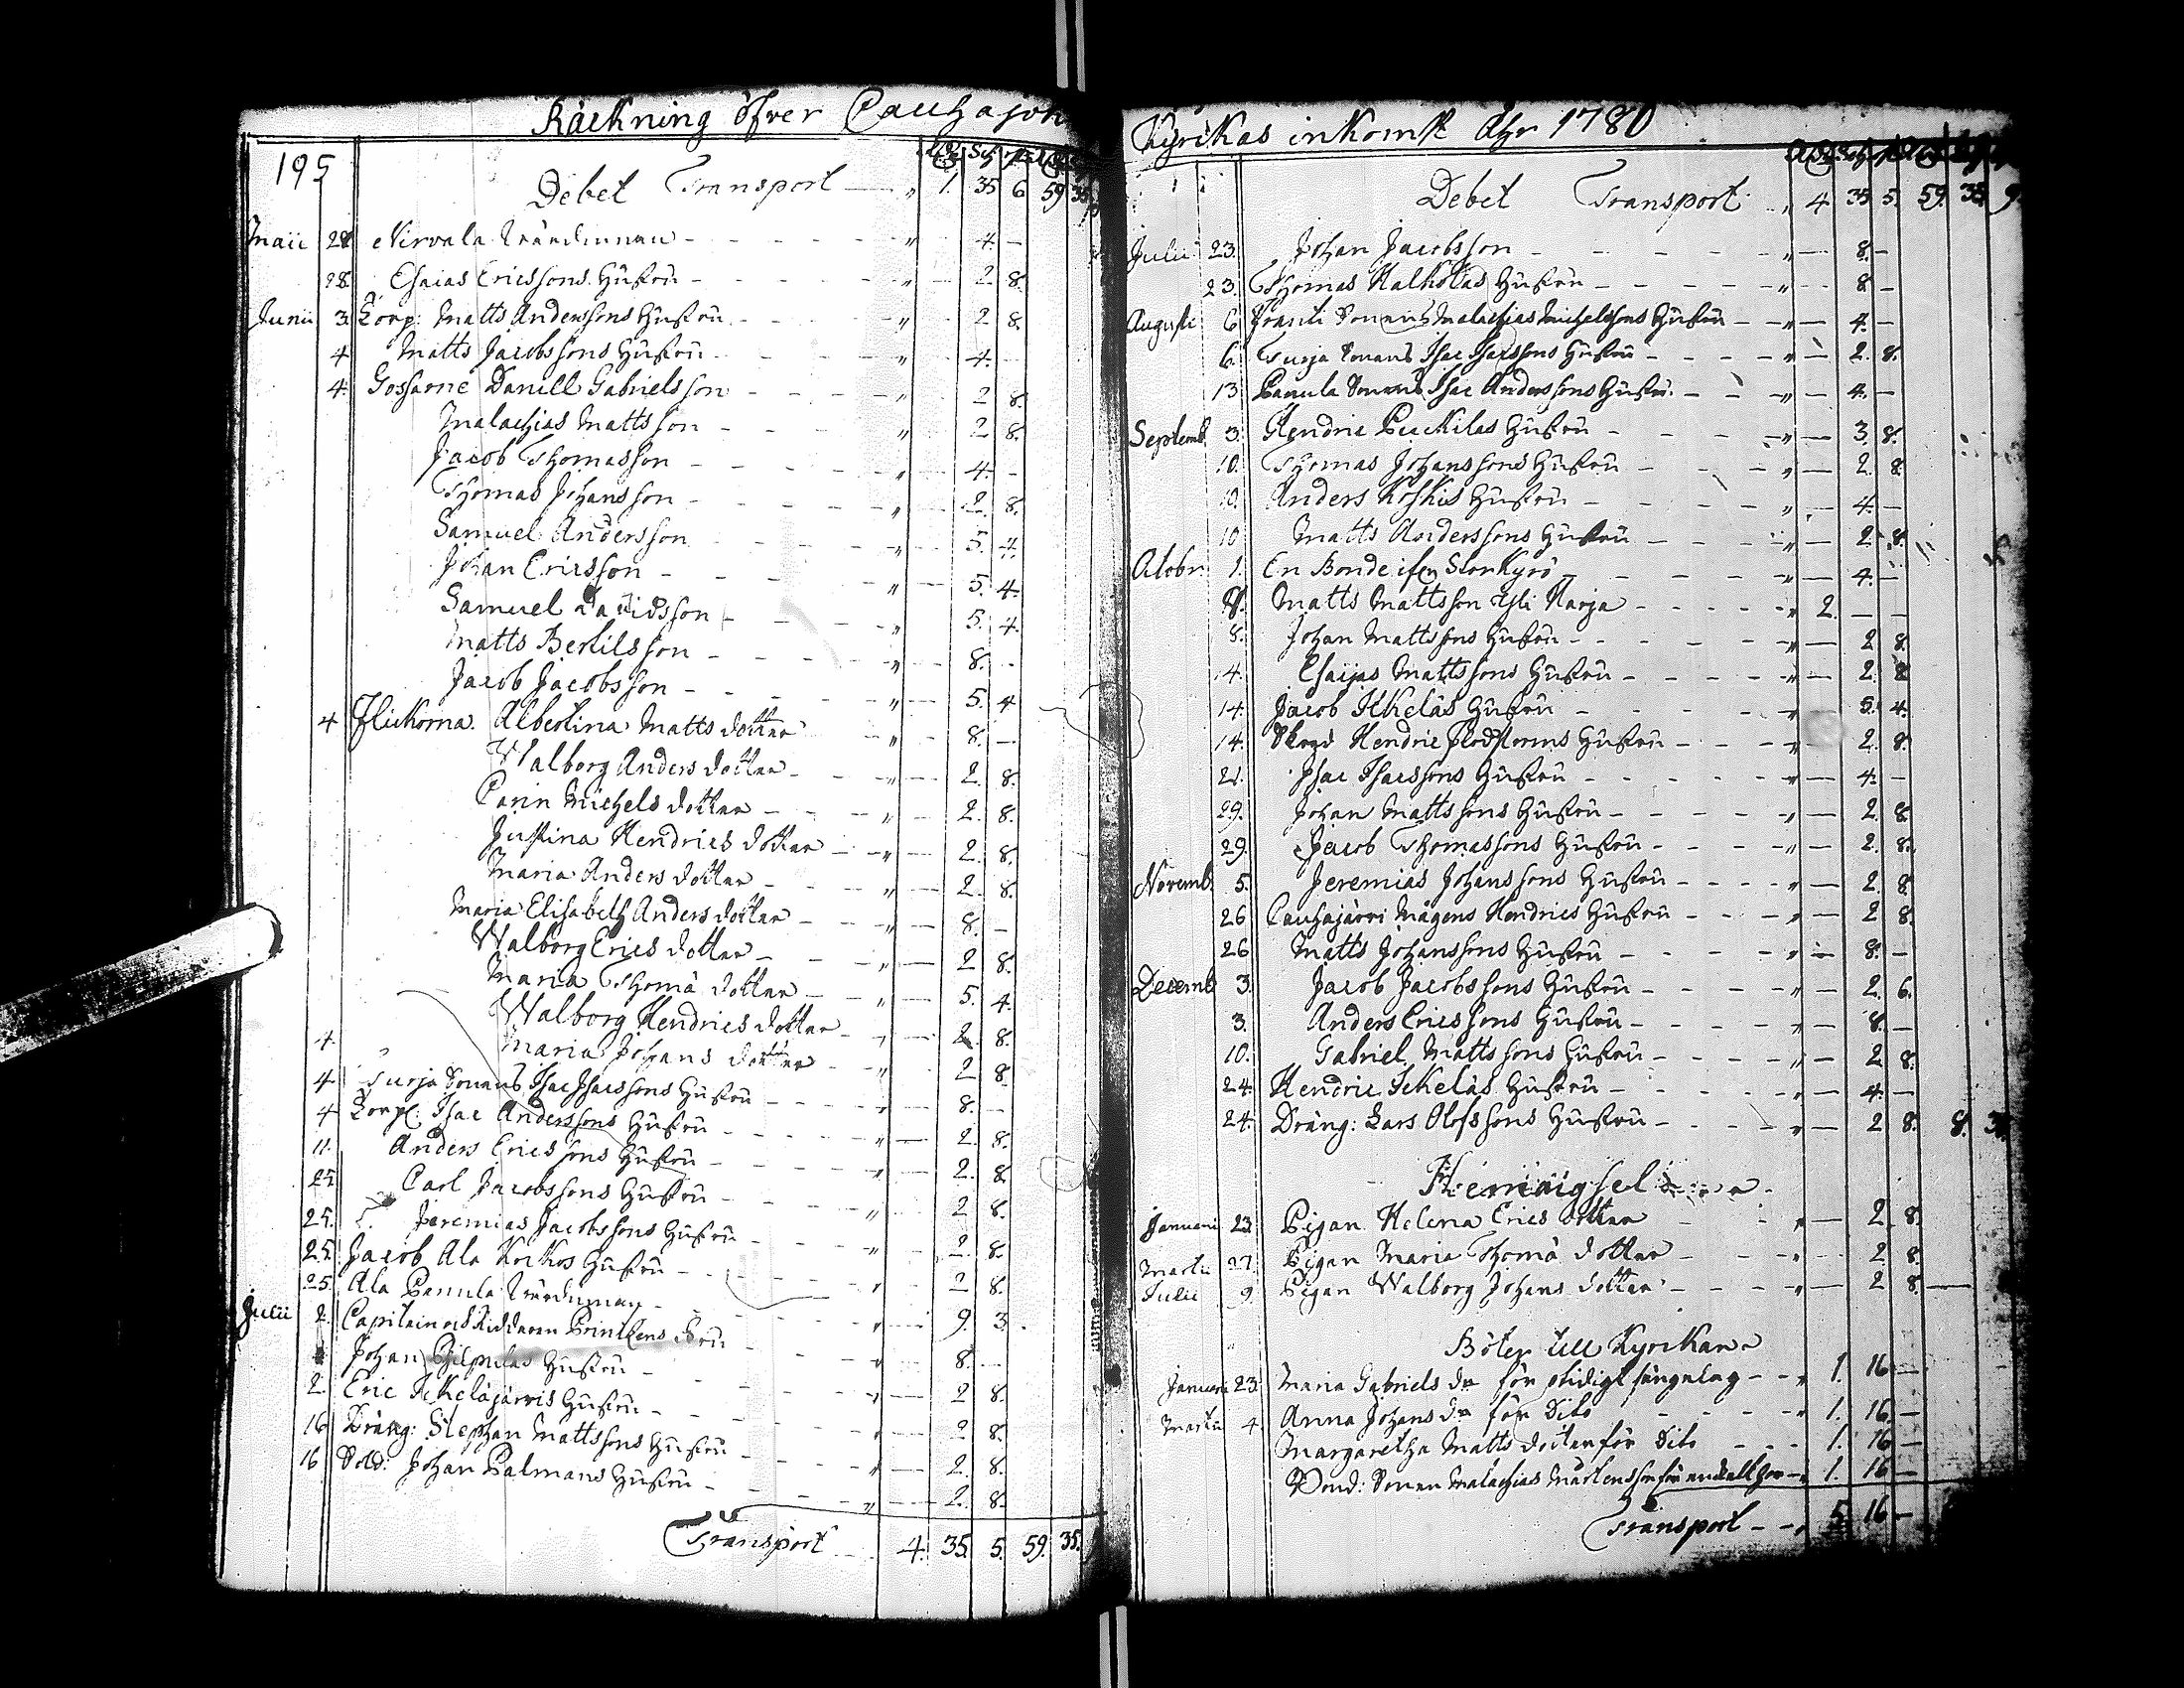 Räckning öfver Cauhajoki
195
Debet Transport — „ 1. 35 6 59 35
Maii 28 Nirvala Wärdinnan - - - „ 4. —
28 Esaias Ericssons Hustru - - - „ 2. 8.
Junii 3. Corp: Matts Anderssons Hustru - - - „ 2 8.
4 Matts Jacobssons Hustru - - - „ 4. —
4. Gossarne Daniell Gabrielsson - - - „ 2 8.
Malachias Mattsson - - - „ 2 8.
Jacob Thomasson - - - „ 4. -
Thomas Johansson - - - „ 2. 8.
Samuel Andersson - - - „ 5. 4.
Johan Ericsson - - - „ 5. 4.
Samuel Davidsson - - - „ 5. 4.
Matts Bertilsson - - - „ 8. -
Jacob Jacobsson - - - „ 5. 4
4 Flickorna. Albertina Matts dotter - - „ 8. —
Walborg Anders dotter - - „ 2. 8.
Carin Michels dotter - - - „ 2. 8.
Justina Hendrics dotter - - „ 2. 8.
Maria Anders dotter - - - „ 2. 8.
Maria Elisabeth Anders dotter - - „ 8. -
Walborg Erics dotter - - - „ 2 8.
Maria Thomä dotter - - „ 5. 4.
Walborg Hendrics dotter - „ 2. 8.
4. Maria Johans dotter - „ 2 8
4 Turja Sonens Isac Isacssons Hustru - - - „ 8. -
4 Corpl: Isac Anderssons Hustru - - - „ 2. 8.
11. Anders Ericssons Hustru - - - „ 2. 8.
25 Carl Jacobssons Hustru - - - „ 2 8.
25. Jeremias Jacobssons Hustru - - - „ 2. 8.
25. Jacob Ala Kockos Hustru - - - „ 2 8.
25. Ala Panula Wärdinnan - - - „ 9. 3.
Julii 2. Capitain och Riddaren Printzens Fru - - „ 8. —
Johan Hustru - - - „ 2 8.
2. Eric Ickeläjärvis Hustru - - - „ 2 8.
16 Dräng: Stephan Mattssons Hustru - - - „ 2. 8.
16. Sold: Johan Palmans Hustru - - - „ 2. 8.
Transport 4. 35. 5. 59. 35.
Kyrckas inkomst Åhr 1780
Debet Transport „ 4 35 5. 59. 35 9.
Julii 23. Johan Jacobsson - - - „ — 8. —
23. Thomas Hustru - - - „ — 8 —
Augusti 6 Sonens Malachias Michelssons Hustru - „ — 4. —
6. Turja Sonens Isac Isacssons Hustru - - - „ — 2. 8.
13 Panula Sonens Isac Anderssons Hustru - - „ — 4. —
Septemb. 3. Hendric Hustru - - - „ — 3. 8.
10. Thomas Johanssons Hustru - - - „ — 2. 8
10. Anders Koskis Hustru - - - „ — 4. —
10 Matts Anderssons Hustru - - - „ — 2. 8.
1. En Bonde ifrån StorKyrö - - - „ — 4. —
8. Matts Mattsson Yli Harja - - - „ 2. — —
8. Johan Mattssons Hustru - - - „ — 2 8.
14. Esaijas Mattssons Hustru - - - „ — 2. 8
14. Jacob Ickeläs Hustru - - - „ 5. 4.
14. Hendric Flodstorms Hustru - - - „ — 2. 8.
21. Isac Isacssons Hustru - - - „ — 4. —
29. Johan Mattssons Hustru - - - „ — 2. 8
29. Jacob Thomassons Hustru - - - „ — 2. 8.
Novemb. 5. Jeremias Johanssons Hustru - - - „ — 2. 8.
26 Cauhajärvi Mågens Hendrics Hustru - - - „ — 2 8.
26 Matts Johanssons Hustru - - - „ — 8. —
Decemb. 3. Jacob Jacobssons Hustru - - - „ — 2. 6.
3. Anders Ericssons Hustru - - - „ — 8. —
10. Gabriel Mattssons Hustru - - - „ — 2 8.
24. Hendric Ickeläs Hustru - - - „ — 4. —
24. Dräng: Lars Olofssons Hustru - - - „ — 2 8. 8.
Januarii 23 Pigan Helena Erics dotter - - „ — 2. 8.
Martii 27. Pigan Maria Thomä dotter - - - „ 2. 8.
Julii 9. Pigan Walborg Johans dotter - - - „ — 2 8. —
Böter till Kyrckan
Januarii 23. Maria Gabriels dr för otidigt sängelag - - „ 1. 16 —
Martii 4. Anna Johans dr för dito - - - „ 1. 16. —
Margaretha Matts dotter för dito - - - 1. 16 —
Sonen Malachias Mårtensson för enkelt hor - „ 1. 16 —
Transport - - „ 5. 16 —